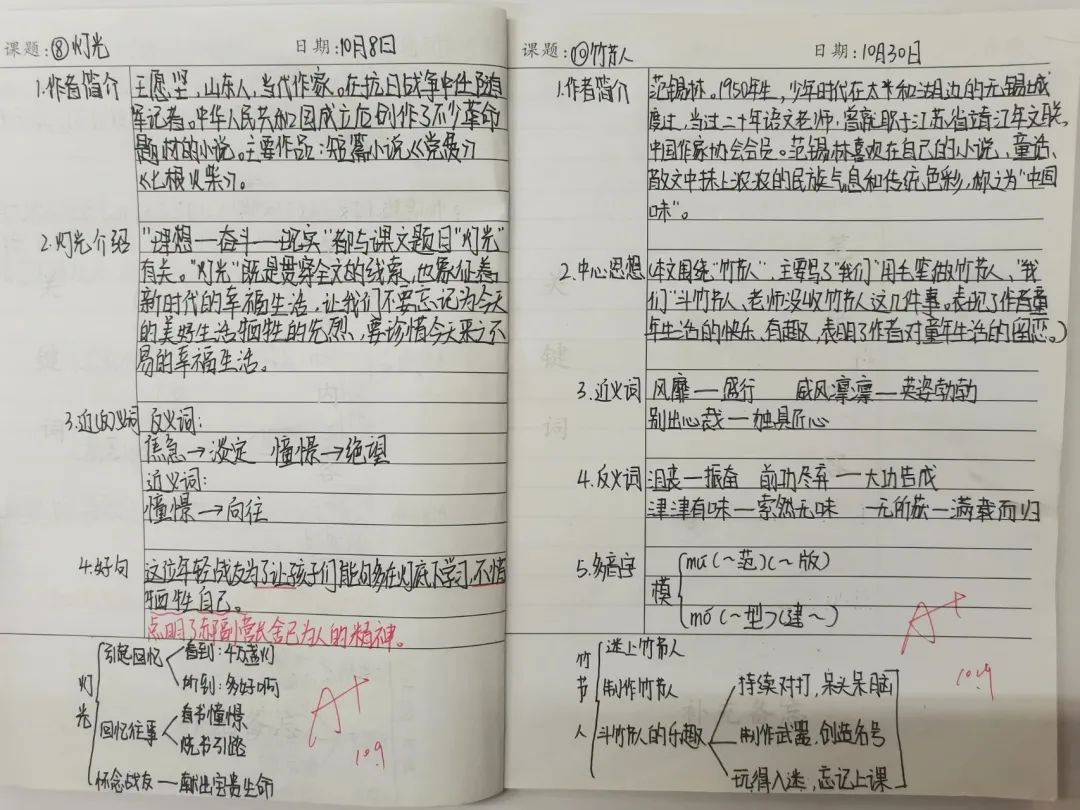 课题:⑧灯光 日期:10月8日
1.作者简介 王愿坚,山东人,当代作家。在抗日战争中任随
军记者。中华人民共和国成立后创作了不少革命
题材的小说。主要作品:短篇小说《党费》
《七根火柴》。
2.灯光介绍 "理想—奋斗—现实"都与课文题目"灯光"
有关。"灯光"既是贯穿全文的线索,也象征着
新时代的幸福生活,让我们不要忘记为今天
的美好生活牺牲的先烈,要珍惜今天来之不
易的幸福生活。
3.近(反)义词 反义词:
焦急→淡定 憧憬→绝望
近义词:
憧憬→向往
4.好句 这位年轻战友为了让孩子们能够在灯底下学习,不惜
牺牲自己。
点明了郝副营长舍己为人的精神。
灯光
引起回忆 看到:华灯
听到:多好啊
回忆往事 看书憧憬
烧书引路
怀念战友—献出宝贵生命
A+
10.9
课题:⑩竹节人 日期:10月30日
1.作者简介 范锡林。1950年生,少年时代在太平和湖边的无锡城
度过,当过二十年语文老师,曾就职于江苏省靖江年文联,
中国作家协会会员。范锡林喜欢在自己的小说、童话、
散文中抹上浓浓的民族气息和传统色彩,称之为"中国
味"。
2.中心思想 (本文围绕"竹节人",主要写了"我们"用毛笔做竹节人、"我
们"斗竹节人、老师没收竹节人这几件事。表现了作者童
年生活的快乐、有趣,表明了作者对童年生活的留恋。)
3.近义词 风靡—盛行 威风凛凛—英姿勃勃
别出心裁—独具匠心
4.反义词 沮丧—振奋 前功尽弃—大功告成
津津有味—索然无味 一无所获—满载而归
5.多音字 模
mú(~范)(~版)
mó(~型)(建~)
竹节人
迷上竹节人
制作竹节人
斗竹节人的乐趣
持续对打,呆头呆脑
制作武器,创造名号
玩得入迷,忘记上课
A+
10.9